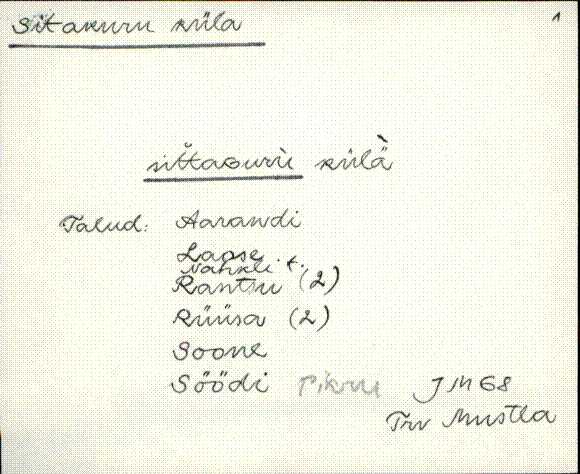 Sitakuru küla 1
sitta&uru külä
Talud: Aarandi
Laose
Nahkli t.
Rantsu (2)
Rüüsa (2)
Soone
Söödi Pikru J M 68
Trv Mustla